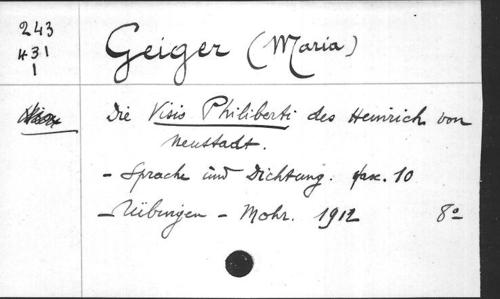 243
431
1
Geiger (Maria)
Die Visis Philiberti des Heinrich von
Neustadt.
- Sprache und Dichtung. fasc. 10
- Tübingen - Mohr. 1912 8º